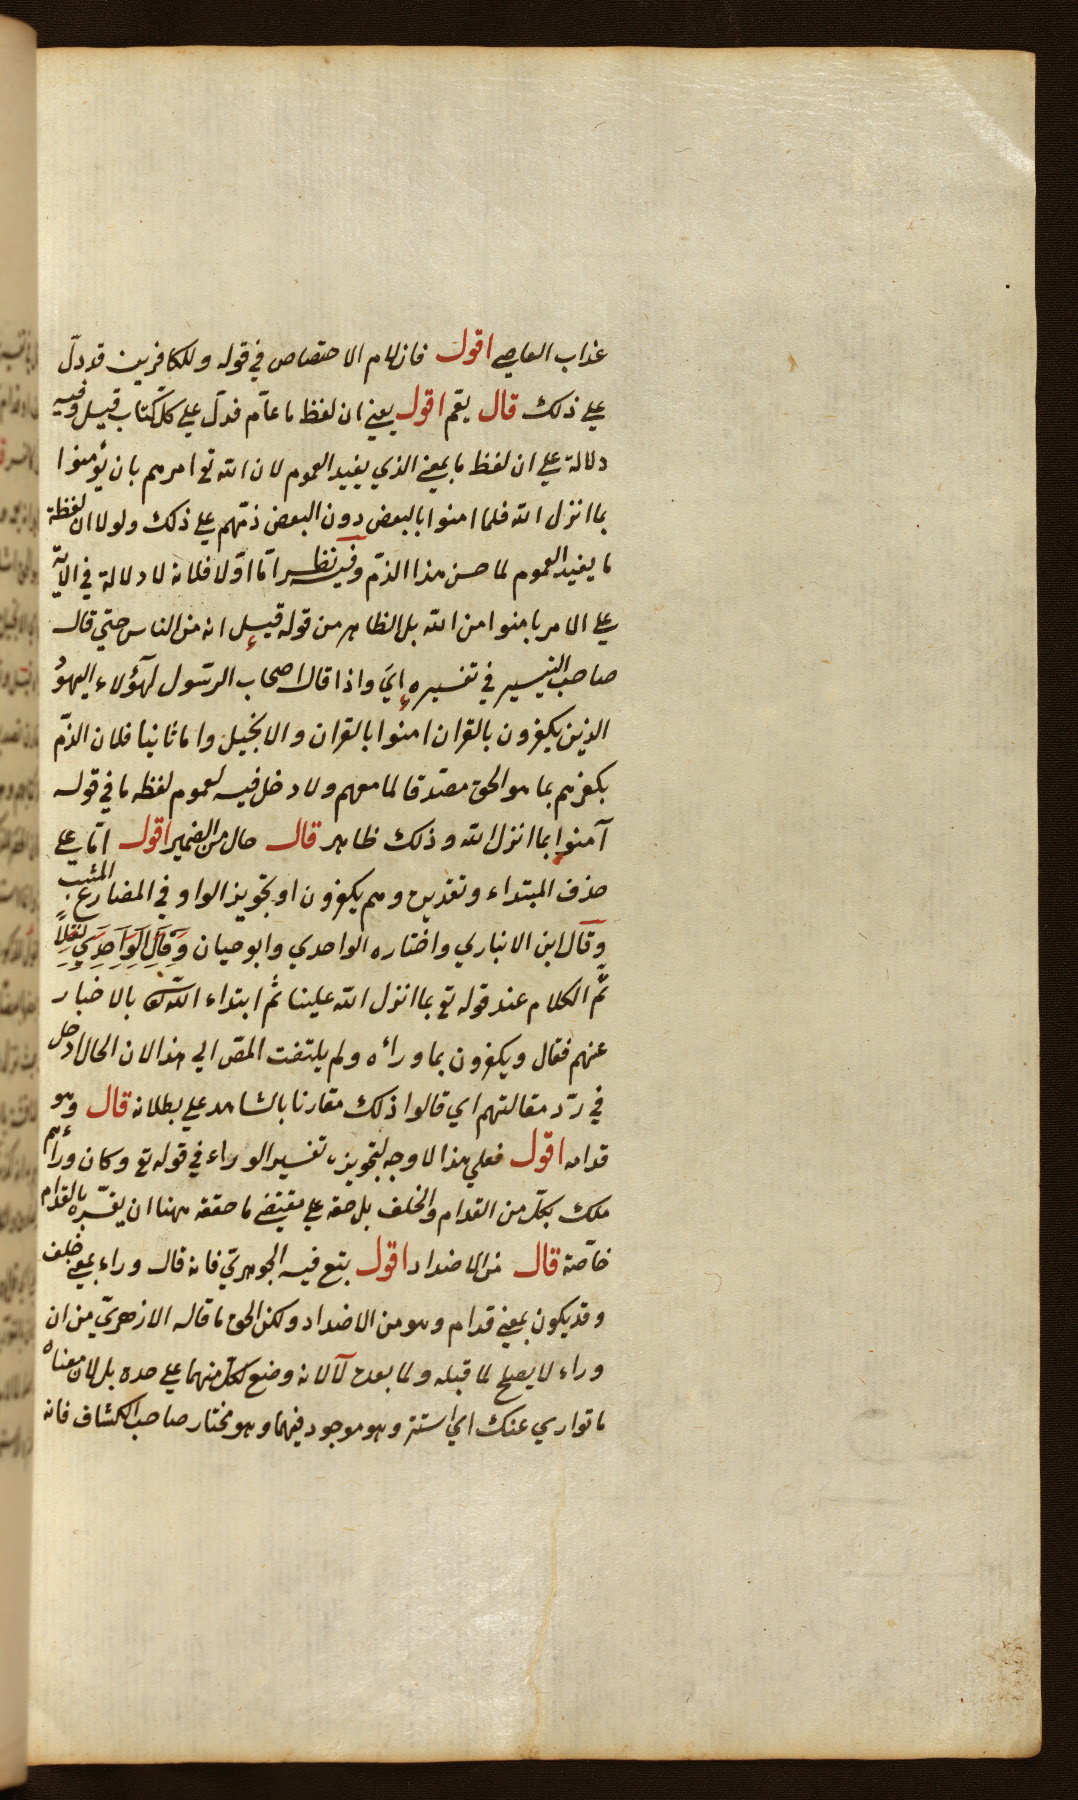 عذاب العاصي اقول فان لام الاختصاص في قوله وللكافرين قد دلّ
علي ذلك قال يعم اقول يعني ان لفظ ما عامّ فدلّ علي كلّ كتاب قيل وفيه
دلالة علي ان لفظ ما بمعني الذي يفيد العموم لان الله تع امرهم بان يؤمنوا
بما انزل الله فلما امنوا بالبعض دون البعض ذمّهم علي ذلك ولولا ان لفظة
ما يفيد العموم لما حسن هذا الذمّ وفيه نظر امّا اوّلا فلانه لا دلالة في الاية
علي الامر بامنوا من الله بل الظاهر من قوله قيل انه من الناس حتي قال
صاحب التيسير في تفسيره اي واذا قال اصحاب الرسول لهؤلاء اليهود
الذين يكفرون بالقران امنوا بالقران والانجيل واما ثانيا فلان الذمّ
بكفرهم بما هو الحق مصدقا لما معهم ولا دخل فيه لعموم لفظه ما في قوله
آمنوا بما انزل الله وذلك ظاهر قال حال من الضمير اقول امّا علي
حذف المبتداء وتقديره وهم يكفرون او تجويز الواو في المضارع المثبت
وقال ابن الانباري واختاره الواحدي وابو حيان وقال الواحدي نقلاً
تمّ الكلام عند قوله تع بما انزل الله علينا ثم ابتداء الله بالاخبار
عنهم فقال ويكفرون بما وراءه ولم يلتفت المص الي هذا لان الحال ادخل
في ردّ مقالتهم اي قالوا ذلك مقارنا بالشاهد علي بطلانه قال وهو
قدامه اقول فعلي هذا لا وجه لتجويزه تفسير الوراء في قوله تع وكان وراءهم
ملك بكلّ من القدام والخلف بل حقه علي مقتضي ما حققه ههنا ان يفسّره بالقدام
خاصّة قال من الاضداد اقول يتبع فيه الجوهريّ فانه قال وراء بمعني خلف
وقد يكون بمعني قدام وهو من الاضداد ولكن الحق ما قاله الازهريّ من ان
وراء لا يصلح لما قبله ولما بعده لا لانه وضع لكلّ منهما علي حده بل لان معناه
ما تواري عنك اي استتر وهو موجود فيهما وهو مختار صاحب الكشاف فانه